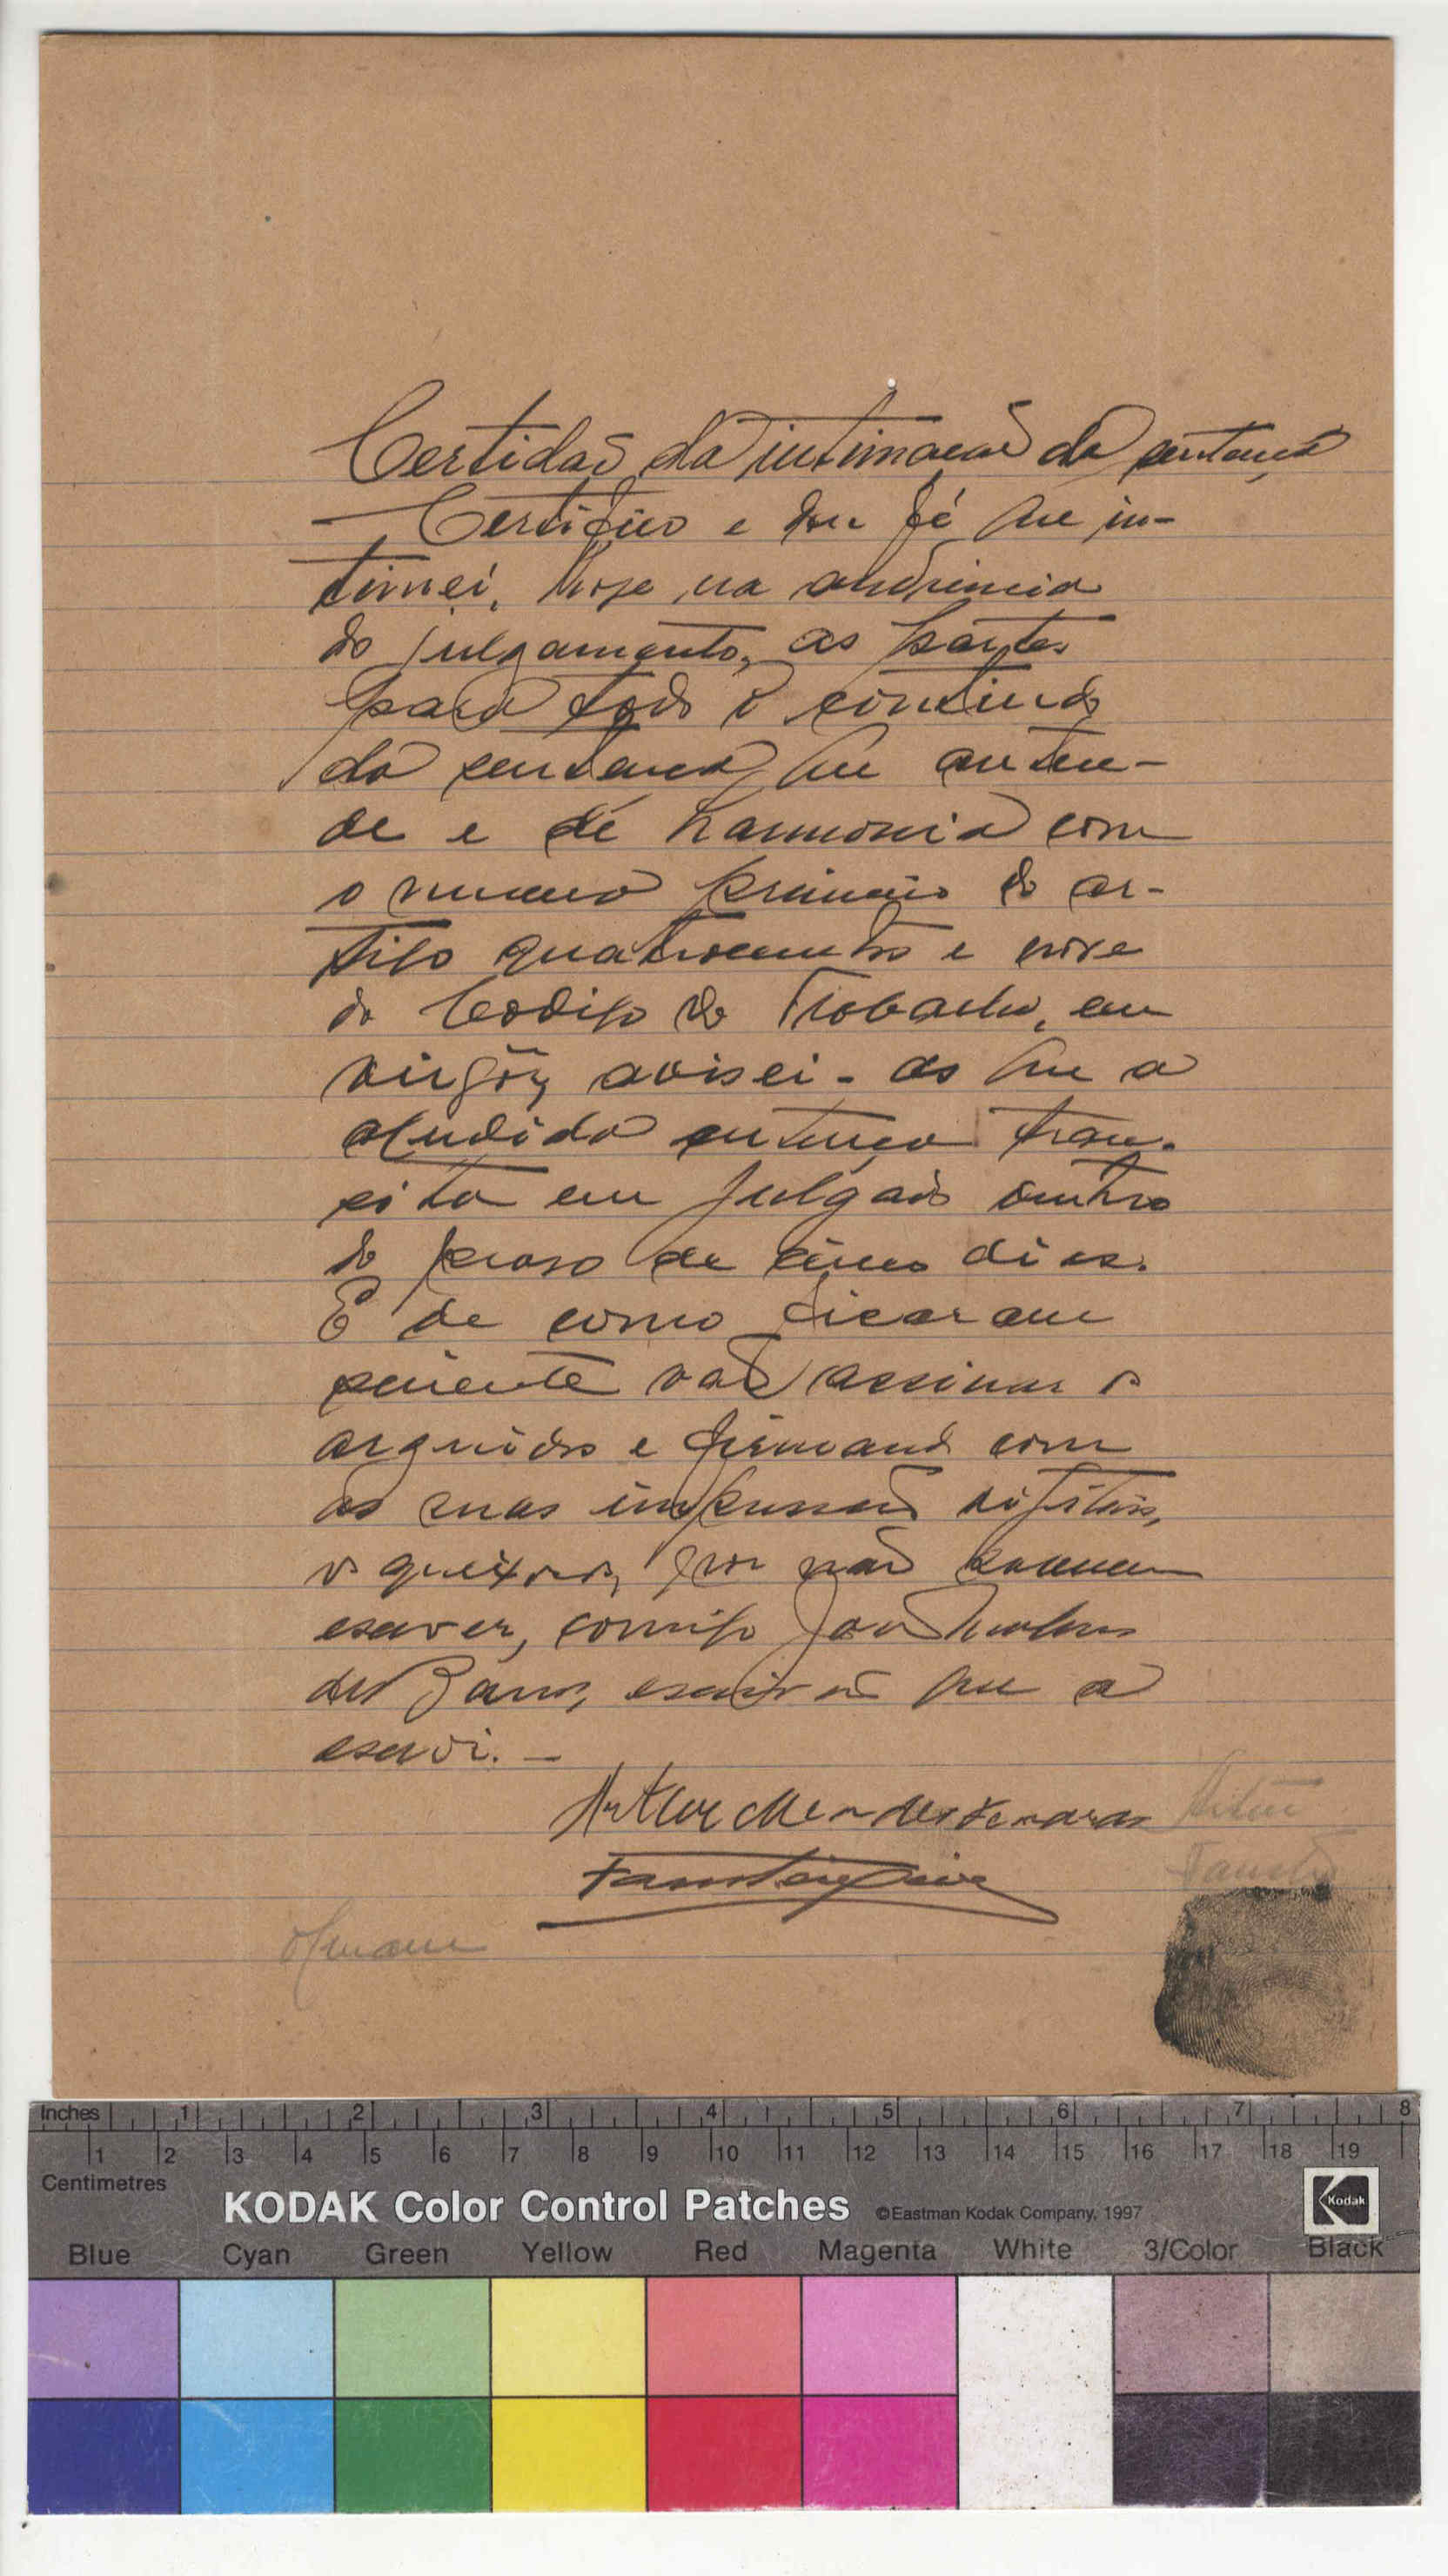 Certidão da intimação da sentença
Certifico e dou fé que in-
timei, hoje, na audiencia
do julgamento, as partes
para todo o conteudo
da sentença que antece-
de e de harmonia com
o numero primeiro do ar-
tigo quatrocentos e nove
do Codigo do Trabalho, em
vigôr, avisei-as que a
aludida sentença tran-
sita em julgado dentro
do praso de cinco dias.
E de como ficaram
sciente vão assinar os
arguidos e firmando com
as suas impressões digitais,
os queixosos, por não saberem
escrever, comigo João
de Barros, escrivão que a
escrevi.-
Artur Mendes
Artur
Fausto
Inches 1 2 3 4 5 6 7 8
1 2 3 4 5 6 7 8 9 10 11 12 13 14 15 16 17 18 19
Centimetres
KODAK Color Control Patches ©Eastman Kodak Company, 1997 Kodak
Blue Cyan Green Yellow Red Magenta White 3/Color Black